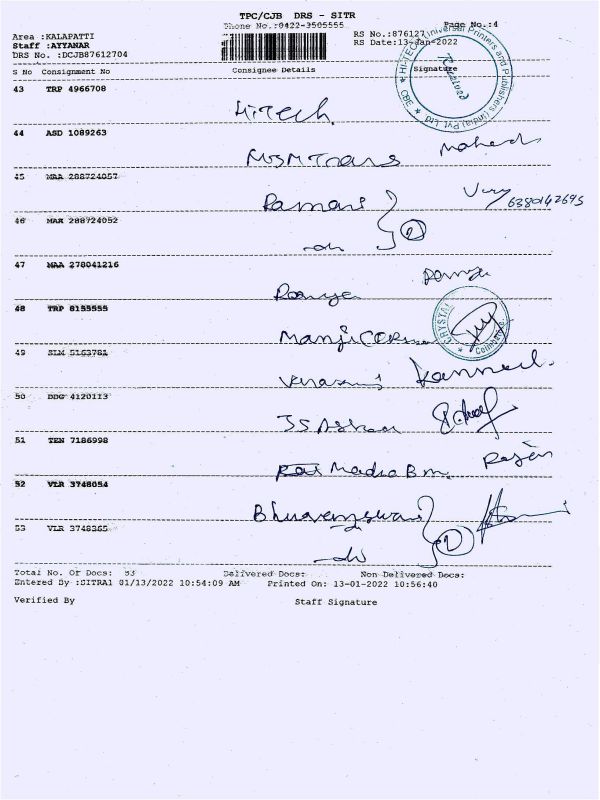 TPC/CJB DRS - SITR
Phone No.:0422-3505555
Page No.:4
Area :KALAPATTI
RS No.:876127
Staff :AYYANAR
RS Date:13-Jan-2022
DRS No. :DCJB87612704
S No Consignment No Consignee Details Signature
HI-TECH Universal Printers and Publishers (India) Pvt Ltd
CBE
Received
43 TRP 4966708
HiTech
44 ASD 1089263
MSM Trans
45 MAA 288724057
6380142695
46 MAA 288724052
-do
2
47 MAA 278041216
Ramya
Ramya
48 TRP 8155555
CRYSTAL
Coimbatore
49 SLM 5163781
50 DDG 4120113
51 TEN 7186998
Rajan
52 VLR 3748054
Bhuvaneswari
53 VLR 3748365
-do
Total No. Of Docs: 53 Delivered Docs: Non Delivered Docs:
Entered By :SITRA1 01/13/2022 10:54:09 AM Printed On: 13-01-2022 10:56:40
Verified By Staff Signature